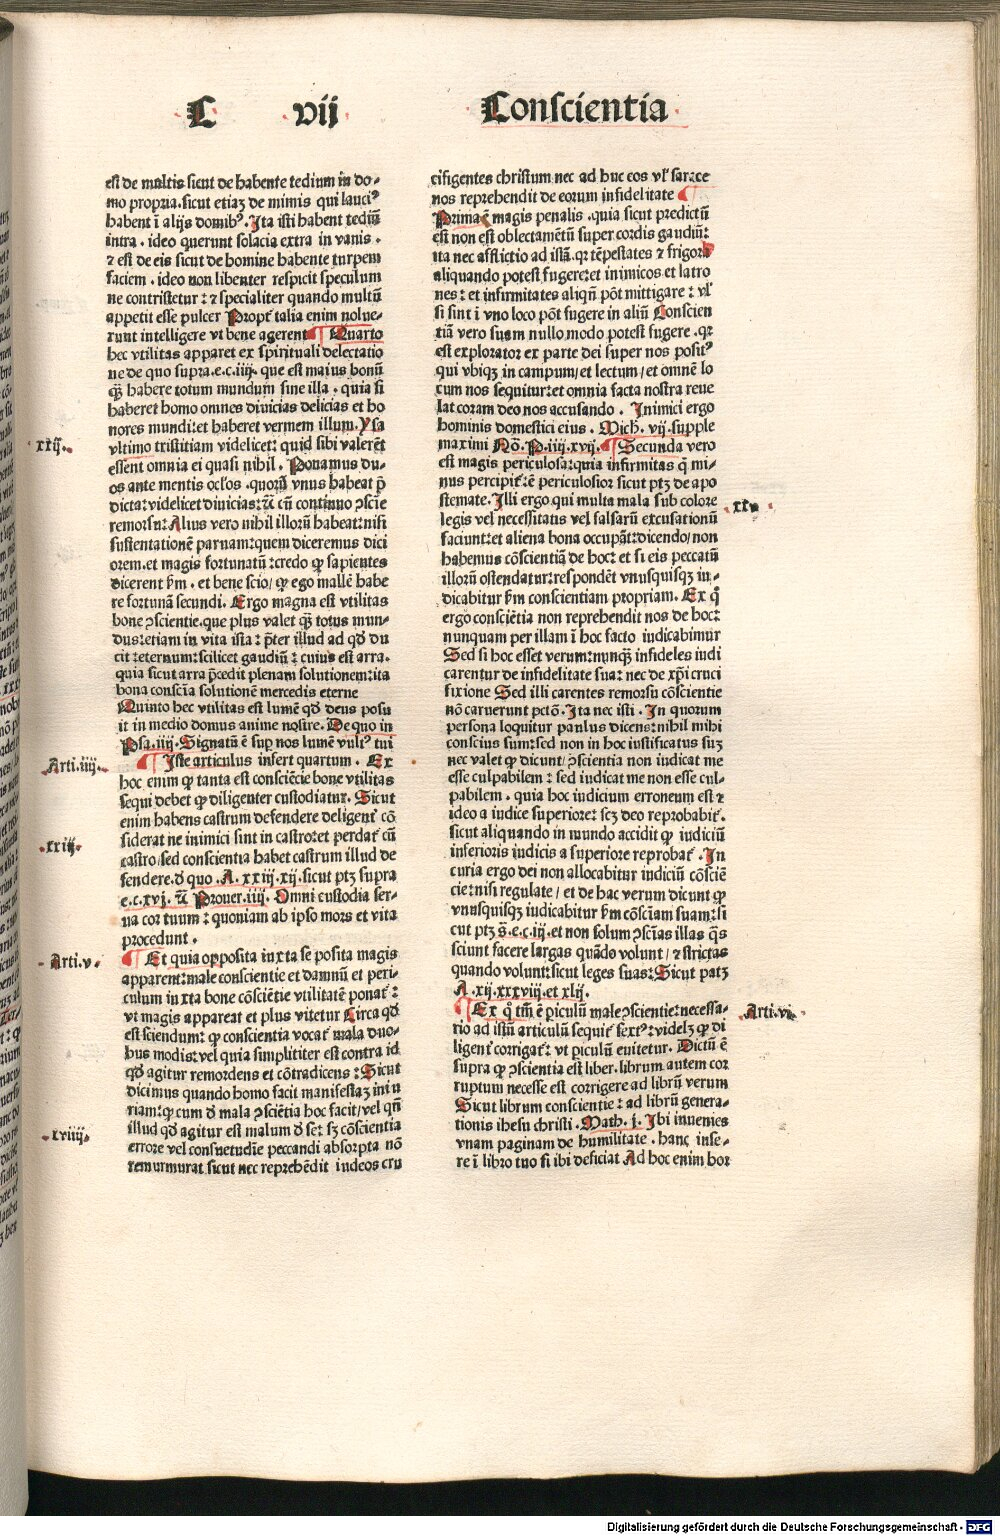 C vij Conscientia
est de multis sicut de habente tedium in do-
mo propria.sicut etiaʒ de mimis qui lauciꝰ
habent ī alijs domibꝰ. Ita isti habent tediū
intra . ideo querunt solacia extra in vanis .
⁊ est de eis sicut de homine habente turpem
faciem . ideo non libenter respicit speculum
ne contristetur : ⁊ specialiter quando multū
appetit esse pulcer Propť talia enim nolue-
runt intelligere vt bene agerent ¶ Quarto
hec vtilitas apparet ex spirituali delectatio
ne de quo supra.e.c.iiij. que est maius bonū
q̄ȝ habere totum mundum sine illa . quia si
haberet homo omnes diuicias delicias et ho
nores mundi:et haberet vermem illum. Ysa
xxij. vltimo tristitiam videlicet: quid sibi valerēt
essent omnia ei quasi nihil . Ponamus du-
os ante mentis ocľos .quorū vnus habeat p̄
dicta:videlicet diuicias:ť cū continuo ↄscīe
remorsu: Alius vero nihil illorū habeat:nisi
sustentationē paruam:quem diceremus dici
orem.et magis fortunatū :credo ꝙ sapientes
dicerent ẜm . et bene scio/ ꝙ ego mallē habe
re fortunā secundi. Ergo magna est vtilitas
bone ↄscientie.que plus valet q̄ȝ totus mun-
dus:etiam in vita ista : p̄ter illud ad qd̄ du
cit :eternum:scilicet gaudiū : cuius est arra.
quia sicut arra p̄cedit plenam solutionem:ita
bona conscīa solutionē mercedis eterne
Quinto hec vtilitas est lumē qd̄ deus posu
it in medio domus anime nostre. De quo in
Psa.iiij.Signatū ē sup nos lumē vulťꝰ tui
Arti.iiij. ¶ Iste articulus infert quartum . Ex
hoc enim ꝙ tanta est consciēcie bone vtilitas
sequi debet ꝙ diligenter custodiatur. Sicut
enim habens castrum defendere deligenť cō
xxiij. siderat ne inimici sint in castro:et perdať cū
castro/sed conscientia habet castrum illud de
fendere.ď quo .A.xxiij.xij.sicut ptʒ supra
e.c.xvj. ť Prouer.iiij. Omni custodia ser-
ua cor tuum : quoniam ab ipso mors et vita
procedunt .
Arti.v. ¶ Et quia opposita iuxta se posita magis
apparent:male conscientie et damnū et peri-
culum iuxta bone cōsciētie vtilitatē ponať :
vt magis appareat et plus vitetur Circa qd̄
est sciendum: ꝙ conscientia vocať mala duo-
bus modis:vel quia simplititer est contra id
qd̄ agitur remordens et cōtradicens : Sicut
dicimus quando homo facit manifestaʒ iniu
riam:ꝙ cum ď mala ↄsciētia hoc facit/vel qn̄
xviiij. illud qd̄ agitur est malum ď se: sʒ cōscientia
errore vel consuetudīe peccandi absorpta nō
remurmurat sicut nec reprehēdit iudeos cru
cifigentes christum nec ad huc eos vľ sarace
nos reprehendit de eorum infidelitate ¶
Prima ē magis penalis .quia sicut predictū
est non est oblectamētū super cordis gaudiū:
ita nec afflictio ad istā.qr tēpestates ⁊ frigora
aliquando potest fugere:et inimicos et latro
nes : et infirmitates aliqn̄ pōt mittigare : vľ
si sint ī vno loco pōt fugere in aliū Conscien
tiā vero suam nullo modo potest fugere .qr
est explorator ex parte dei super nos positꝰ
qui vbiqʒ in campum/et lectum/et omnē lo
cum nos sequitur:et omnia facta nostra reue
lat coram deo nos accusando . Inimici ergo
hominis domestici eius . Mich. vij.supple
maximi No.P.iiij.xvij. ¶ Secunda vero
est magis periculosa:quia infirmitas q̄ mi-
nus percipiť:ē periculosior sicut ptʒ de apo
xxv stemate. Illi ergo qui multa mala sub colore
legis vel necessitatis vel falsarū excusationū
faciunt:et aliena bona occupāt:dicendo/non
habemus cōscientiā de hoc: et si eis peccatū
illorū ostendatur:respondēt vnusquisqʒ iu-
dicabitur ẜm conscientiam propriam. Ex q̊
ergo consciētia non reprehendit nos de hoc:
nunquam per illam ī hoc facto iudicabimur
Sed si hoc esset verum:nunq̄ȝ infideles iudi
carentur de infidelitate sua: nec de xp̄i cruci
fixione Sed illi carentes remorsu cōscientie
nō caruerunt pctō. Ita nec isti . In quorum
persona loquitur paulus dicens:nihil mihi
conscius sum:sed non in hoc iustificatus suʒ
nec valet ꝙ dicunt/ ↄscientia non iudicat me
esse culpabilem : sed iudicat me non esse cul-
pabilem . quia hoc iudicium erroneum est ⁊
ideo a iudice superiore: scʒ deo reprobabiť.
sicut aliquando in mundo accidit ꝙ iudiciū
inferioris iudicis a superiore reprobať . In
curia ergo dei non allocabitur iudiciū consciē
cie:nisi regulate / et de hac verum dicunt ꝙ
vnusquisqʒ iudicabitur ẜm cōsciam suam:si
cut ptʒ s̄.e.c.iij.et non solum ↄscīas illas q̄s
sciunt facere largas quādo volunt/ ⁊ strictas
quando volunt:sicut leges suas: Sicut patʒ
A.xij.xxxviij.et xlij.
Arti.vi. ¶ Ex q̊ tm̄ ē piculū male ↄscientie:necessa-
rio ad istū articulū sequiť sexťꝰ:videlʒ ꝙ di
ligenť corrigať: vt piculū euitetur. Dictū ē
supra ꝙ ↄscientia est liber. librum autem cor
ruptum necesse est corrigere ad librū verum
Sicut librum conscientie : ad librū genera-
tionis ihesu christi . Math. j. Ibi inuenies
vnam paginam de humilitate . hanc inse-
re ī libro tuo si ibi deficiat Ad hoc enim hor
Digitalisierung gefördert durch die Deutsche Forschungsgemeinschaft - DFG